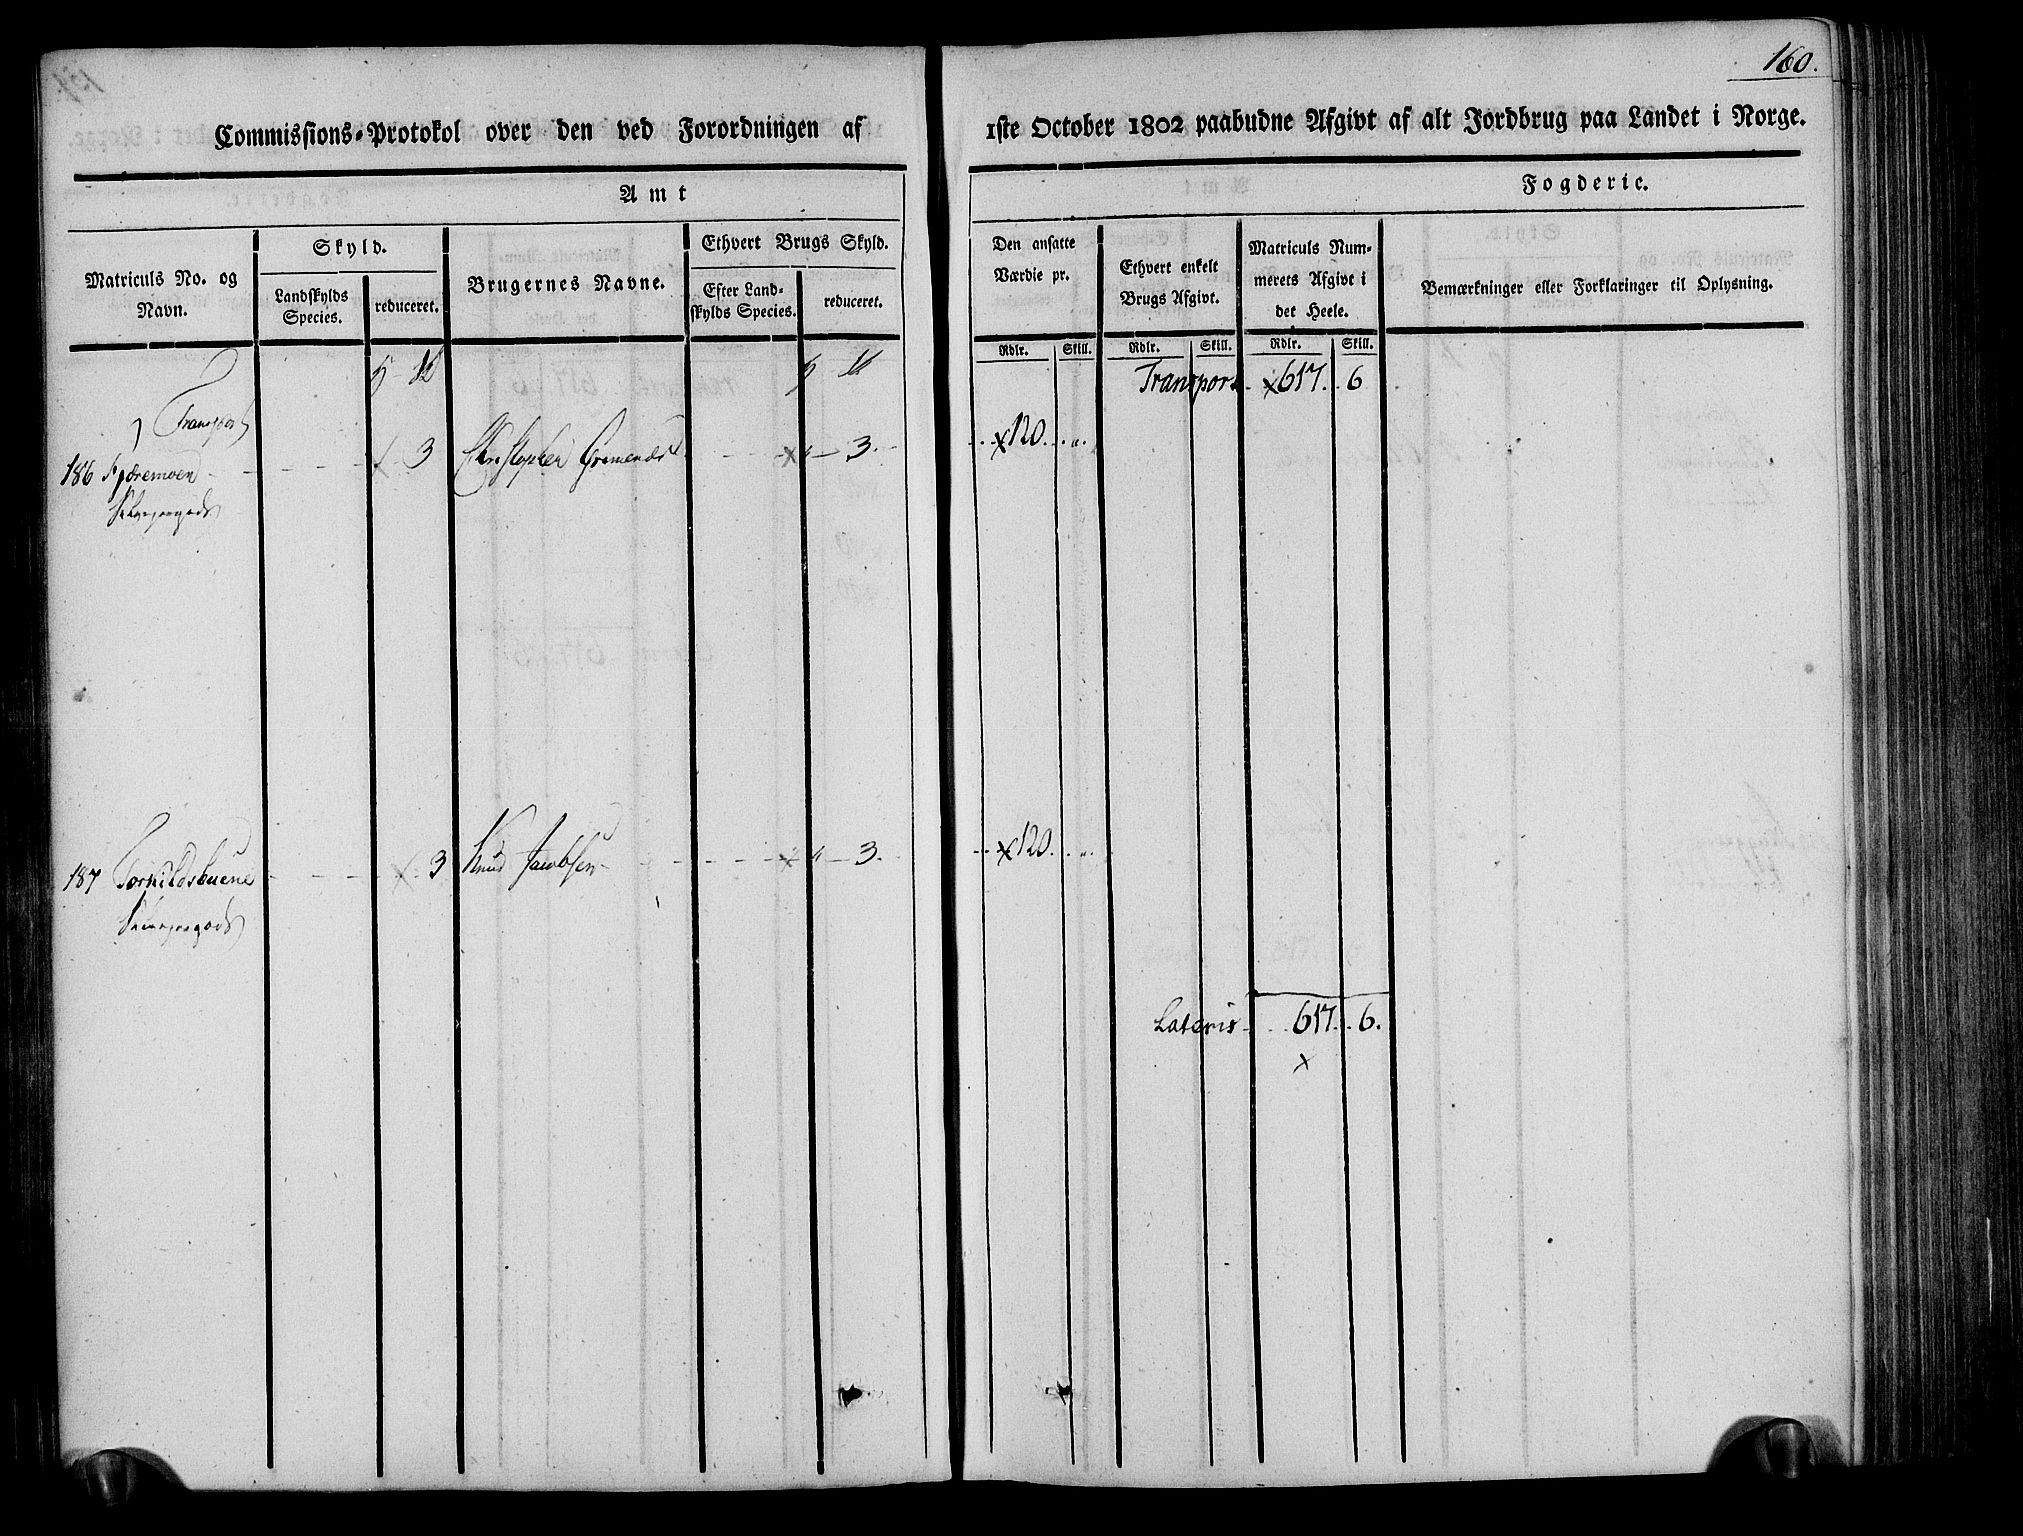 160.
Commissions-Protokol over den ved Forordningen af 1ste October 1802 paabudne Afgivt af alt Jordbrug paa Landet i Norge.
Amt
Fogderie.
Matriculs No. og Navn.
Skyld.
Landskylds Species.
reduceret.
Brugernes Navne.
Ethvert Brugs Skyld.
Efter Landskylds Species.
reduceret.
Den ansatte Værdie pr.
Ethvert enkelt Brugs Afgivt.
Matriculs Nummerets Afgivt i det Heele.
Bemærkninger eller Forklaringer til Oplysning.
Rdlr. Skill. Rdlr. Skill. Rdlr. Skill.
Transport
Transport x 617. 6
186 Fjæremoen x 3 Christopher x " 3. x 120. "
187 Torkildsbuene x 3 Knud Jacobsen x " 3. x 120. "
Lateris 617. 6.
x